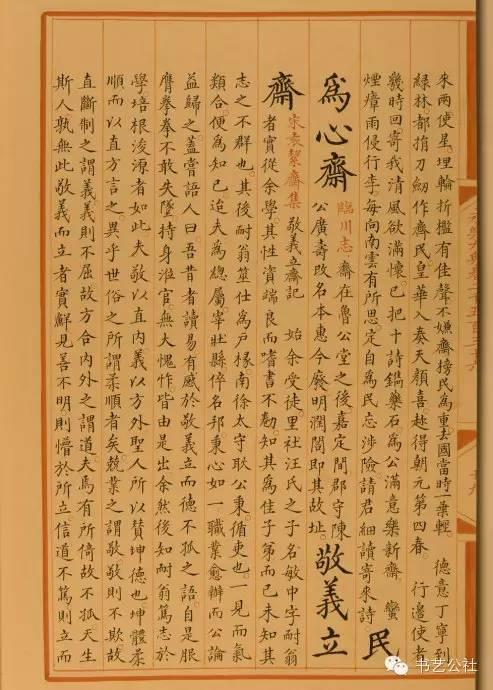 來兩使星。埋輪折檻有佳聲。不嫌齋榜民為重。去國當時一葉輕。 德意丁寧到
綠林。都捐刀劒作齊民。皇華入奏天顏喜。趂得朝元第四春。 行邊使者
幾時回。寄我清風欲滿懷。已把十詩鐫藥石。為公滿意樂新齋。 蠻
煙瘴雨侵行李。每向南雲有所思。定自為民忘涉險。請君細讀寄來詩。
民
為心齋
臨川志 齋在魯公堂之後。嘉定間郡守陳
公廣壽攺名本惠。今廢。明潤閣即其故址。
敬義立
齋
宋袁絜齋集 敬義立齋記 始余受徒里社。汪氏之子名敏中字耐翁
者。實從余學。其性資端良而嗜書不勌。知其為佳子第而已。未知其
志之不群也。其後耐翁筮仕為戶掾。南徐太守耿公秉。循吏也。一見而氣
類合。便為知己。迨夫為總屬。宰壯縣。倅名邦。秉心如一。職業愈辦。而公論
益歸之。蓋嘗語人曰。吾昔者讀易。有感於敬義立而德不孤之語。自是服
膺拳拳。不敢失墜。持身涖官。無大愧怍。皆由是出。余然後知耐翁篤志於
學。培根浚源者如此。夫敬以直內。義以方外。聖人所以贊坤德也。坤體柔
順。而以直方言之。異乎世俗之所謂柔順者矣。兢業之謂敬。敬則不欺。故
直。斷制之謂義。義則不屈。故方。合內外之謂道。夫焉有所倚。故不孤。天生
斯人。孰無此敬義。而立者實鮮。見善不明。則懵於所立。信道不篤。則立而
书艺公社